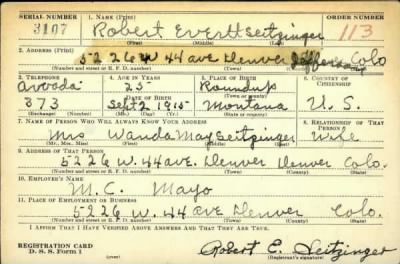 SERIAL NUMBER 1. NAME (Print) ORDER NUMBER
3107 Robert Evertt Seitzinger 113
(First) (Middle) (Last)
2. ADDRESS (Print)
5226 W. 44 ave Denver Jefferson Colo
(Number and street or R. F. D. number) (Town) (County) (State)
3. TELEPHONE 4. AGE IN YEARS 5. PLACE OF BIRTH 6. COUNTRY OF CITIZENSHIP
Arvada 25 Roundup
DATE OF BIRTH (Town or county)
873 Sept 2 1915 Montana U. S.
(Exchange) (Number) (Mo.) (Day) (Yr.) (State or country)
7. NAME OF PERSON WHO WILL ALWAYS KNOW YOUR ADDRESS 8. RELATIONSHIP OF THAT PERSON
Mrs Wanda May Seitzinger Wife
(Mr., Mrs., Miss) (First) (Middle) (Last)
9. ADDRESS OF THAT PERSON
5226 W. 44 ave. Denver Denver Colo.
(Number and street or R. F. D. number) (Town) (County) (State)
10. EMPLOYER'S NAME
M. C. Mayo
11. PLACE OF EMPLOYMENT OR BUSINESS
5226 W. 44 ave Denver Colo.
(Number and street or R. F. D. number) (Town) (County) (State)
I AFFIRM THAT I HAVE VERIFIED ABOVE ANSWERS AND THAT THEY ARE TRUE.
REGISTRATION CARD
D. S. S. Form 1 Robert E. Seitzinger
(Registrant's signature)